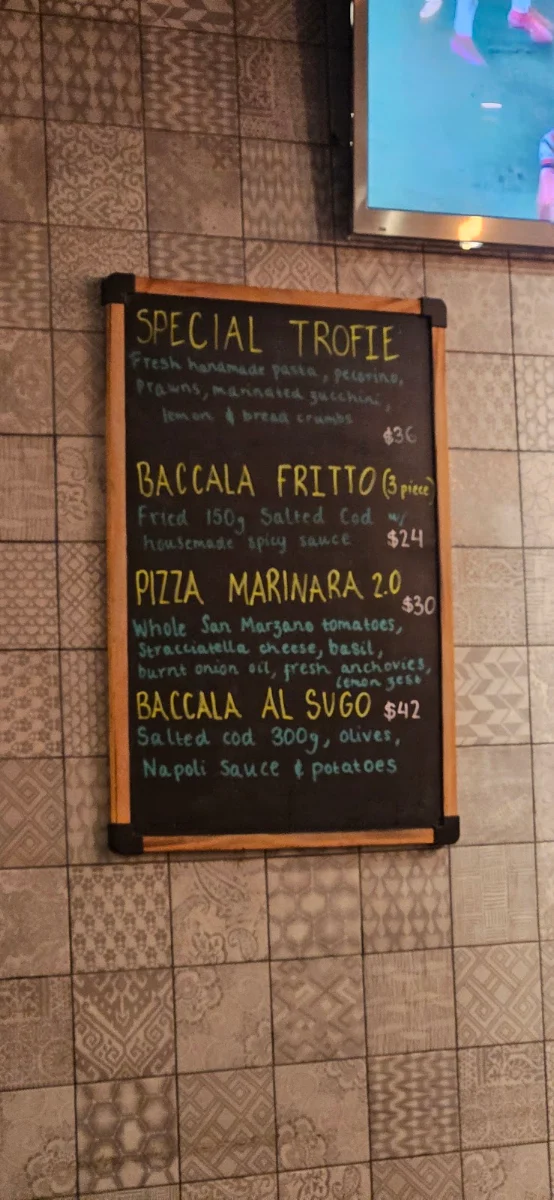 SPECIAL TROFIE
Fresh handmade pasta, pecorino,
prawns, marinated zucchini,
lemon & bread crumbs
$36
BACCALA FRITTO (3 piece)
Fried 150g Salted Cod w/
housemade spicy sauce $24
PIZZA MARINARA 2.0
$30
Whole San Marzano tomatoes,
Stracciatella cheese, basil,
burnt onion oil, fresh anchovies,
lemon zest
BACCALA AL SUGO $42
Salted cod 300g, olives,
Napoli Sauce & potatoes